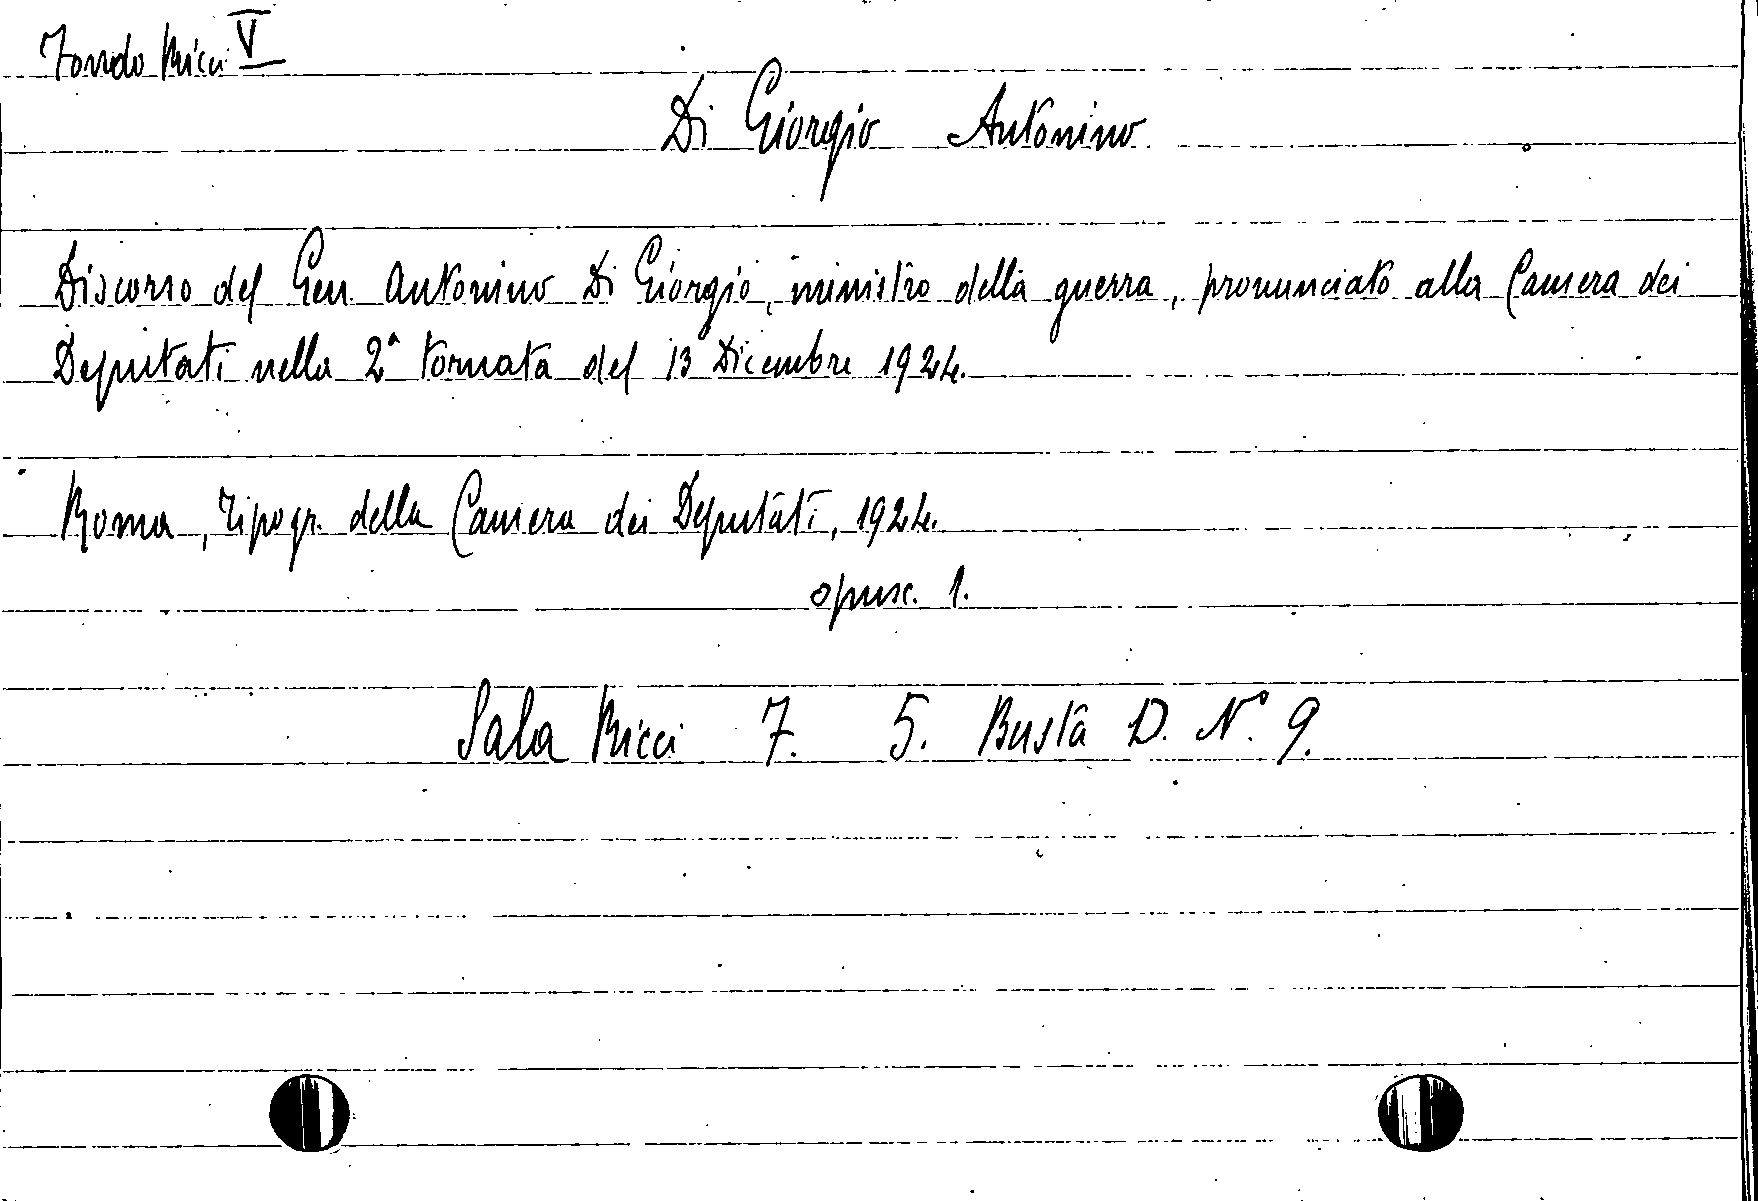 Fondo Ricci V
Di Giorgio Antonino
Discorso del Gen. Antonino Di Giorgio, ministro della guerra, pronunciato alla Camera dei
Deputati nella 2ª tornata del 13 Dicembre 1924.
Roma, Tipogr. della Camera dei Deputati, 1924.
opusc. 1.
Sala Ricci 7. 5. Busta D. N° 9.